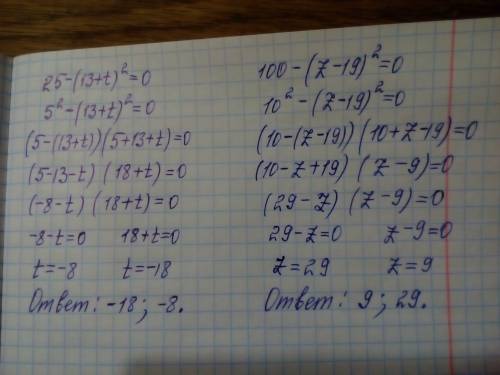 25-(13+t)²=0
5²-(13+t)²=0
(5-(13+t))(5+13+t)=0
(5-13-t) (18+t)=0
(-8-t) (18+t)=0
-8-t=0 18+t=0
t=-8 t=-18
Ответ: -18; -8.
100-(z-19)²=0
10²-(z-19)²=0
(10-(z-19)) (10+z-19)=0
(10-z+19) (z-9)=0
(29-z) (z-9)=0
29-z=0 z-9=0
z=29 z=9
Ответ: 9; 29.